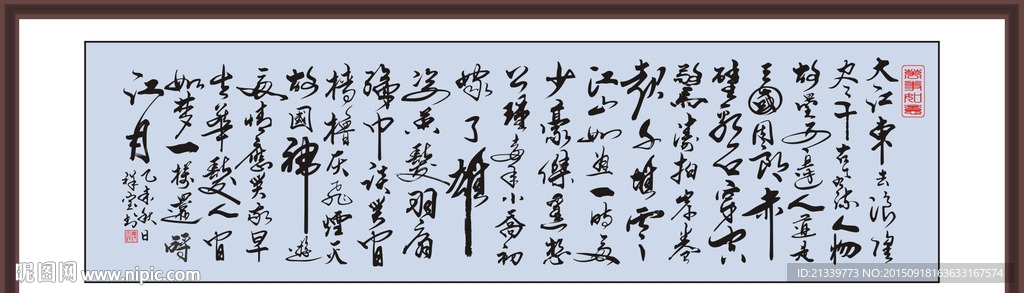 萬事如意
大江東去浪淘
尽千古風流人物
故壘西邊人道是
三國周郎赤
壁亂石穿空
驚濤拍岸卷
起千堆雪
江山如畫一時多
少豪傑遥想
公瑾當年小喬初
嫁了雄
姿英發羽扇
綸巾談笑間
檣櫓灰飛煙滅
故國神遊
多情應笑我早
生華髮人間
如梦一樽還酹
江月
乙未秋日
昵图网 www.nipic.com
ID:21339773 NO:20150918163633167574